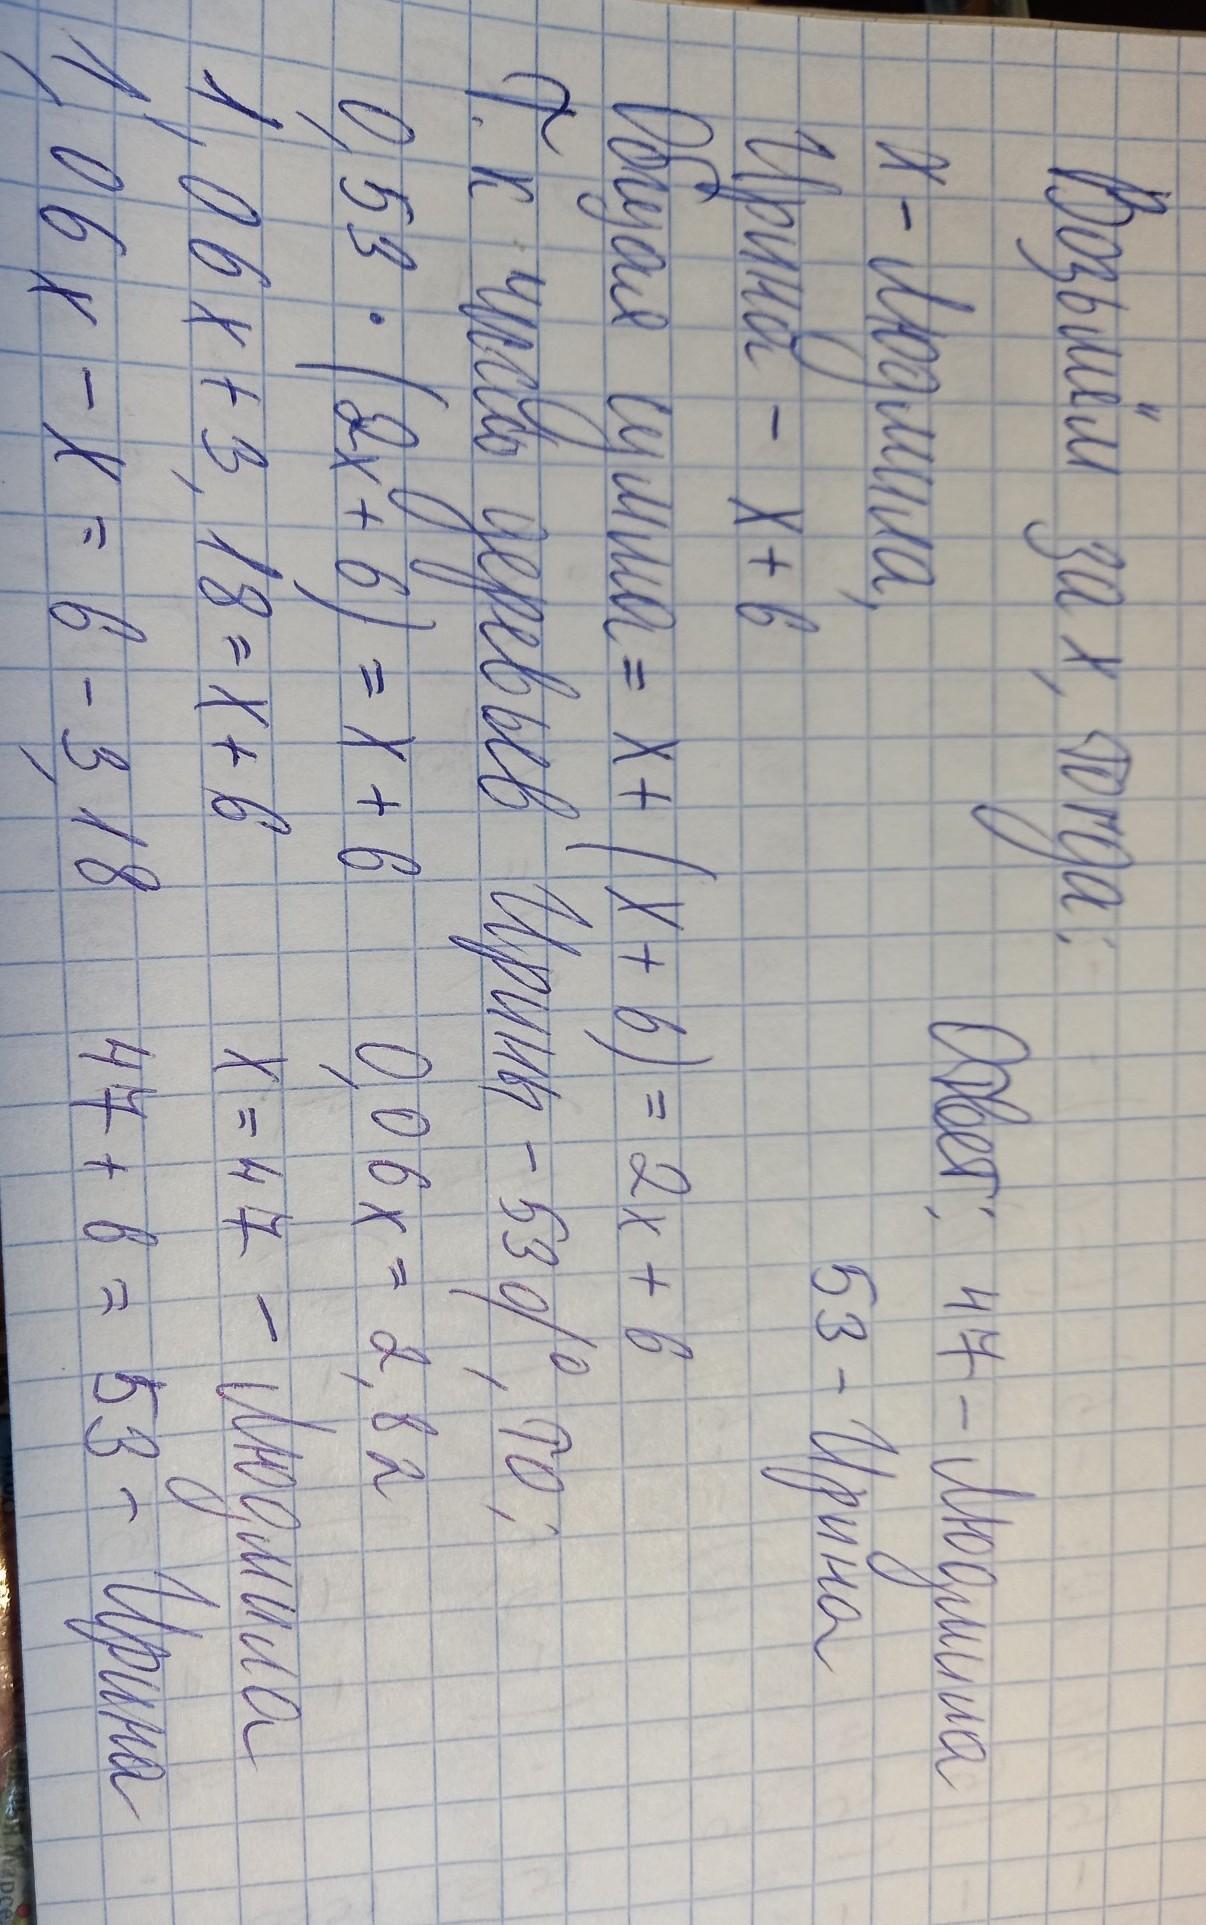 Возьмём за х, тогда:
х - Людмила,
Ирина - х + 6
Общая сумма = х + (х + 6) = 2х + 6
Т. к число деревьев Ирины - 53%, то:
0,53 · (2х + 6) = х + 6
1,06х + 3,18 = х + 6
1,06х - х = 6 - 3,18
0,06х = 2,82
х = 47 - Людмила
47 + 6 = 53 - Ирина
Ответ: 47 - Людмила
53 - Ирина